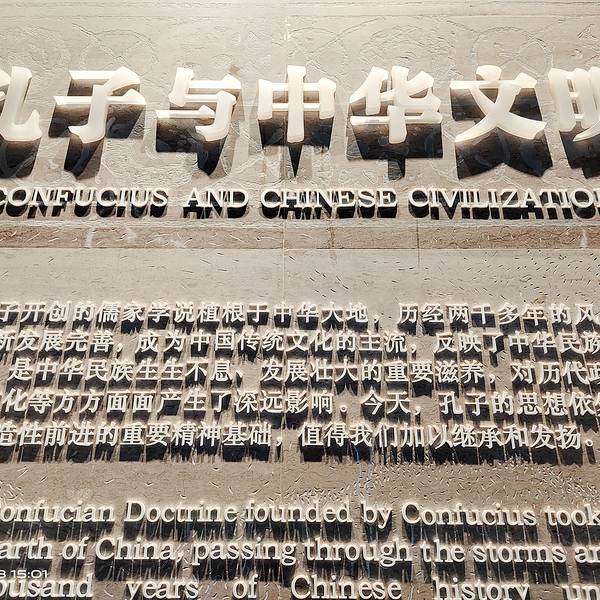 孔子与中华文明
CONFUCIUS AND CHINESE CIVILIZATION
子开创的儒家学说植根于中华大地，历经两千多年的风
新发展完善，成为中国传统文化的主流，反映了中华民族
是中华民族生生不息，发展壮大的重要滋养，对历代政
化等方方面面产生了深远影响。今天，孔子的思想依
造性前进的重要精神基础，值得我们加以继承和发扬。
onfucian Doctrine founded by Confucius took
arth of China, passing through the storms an
15:01
ousand years of Chinese history un